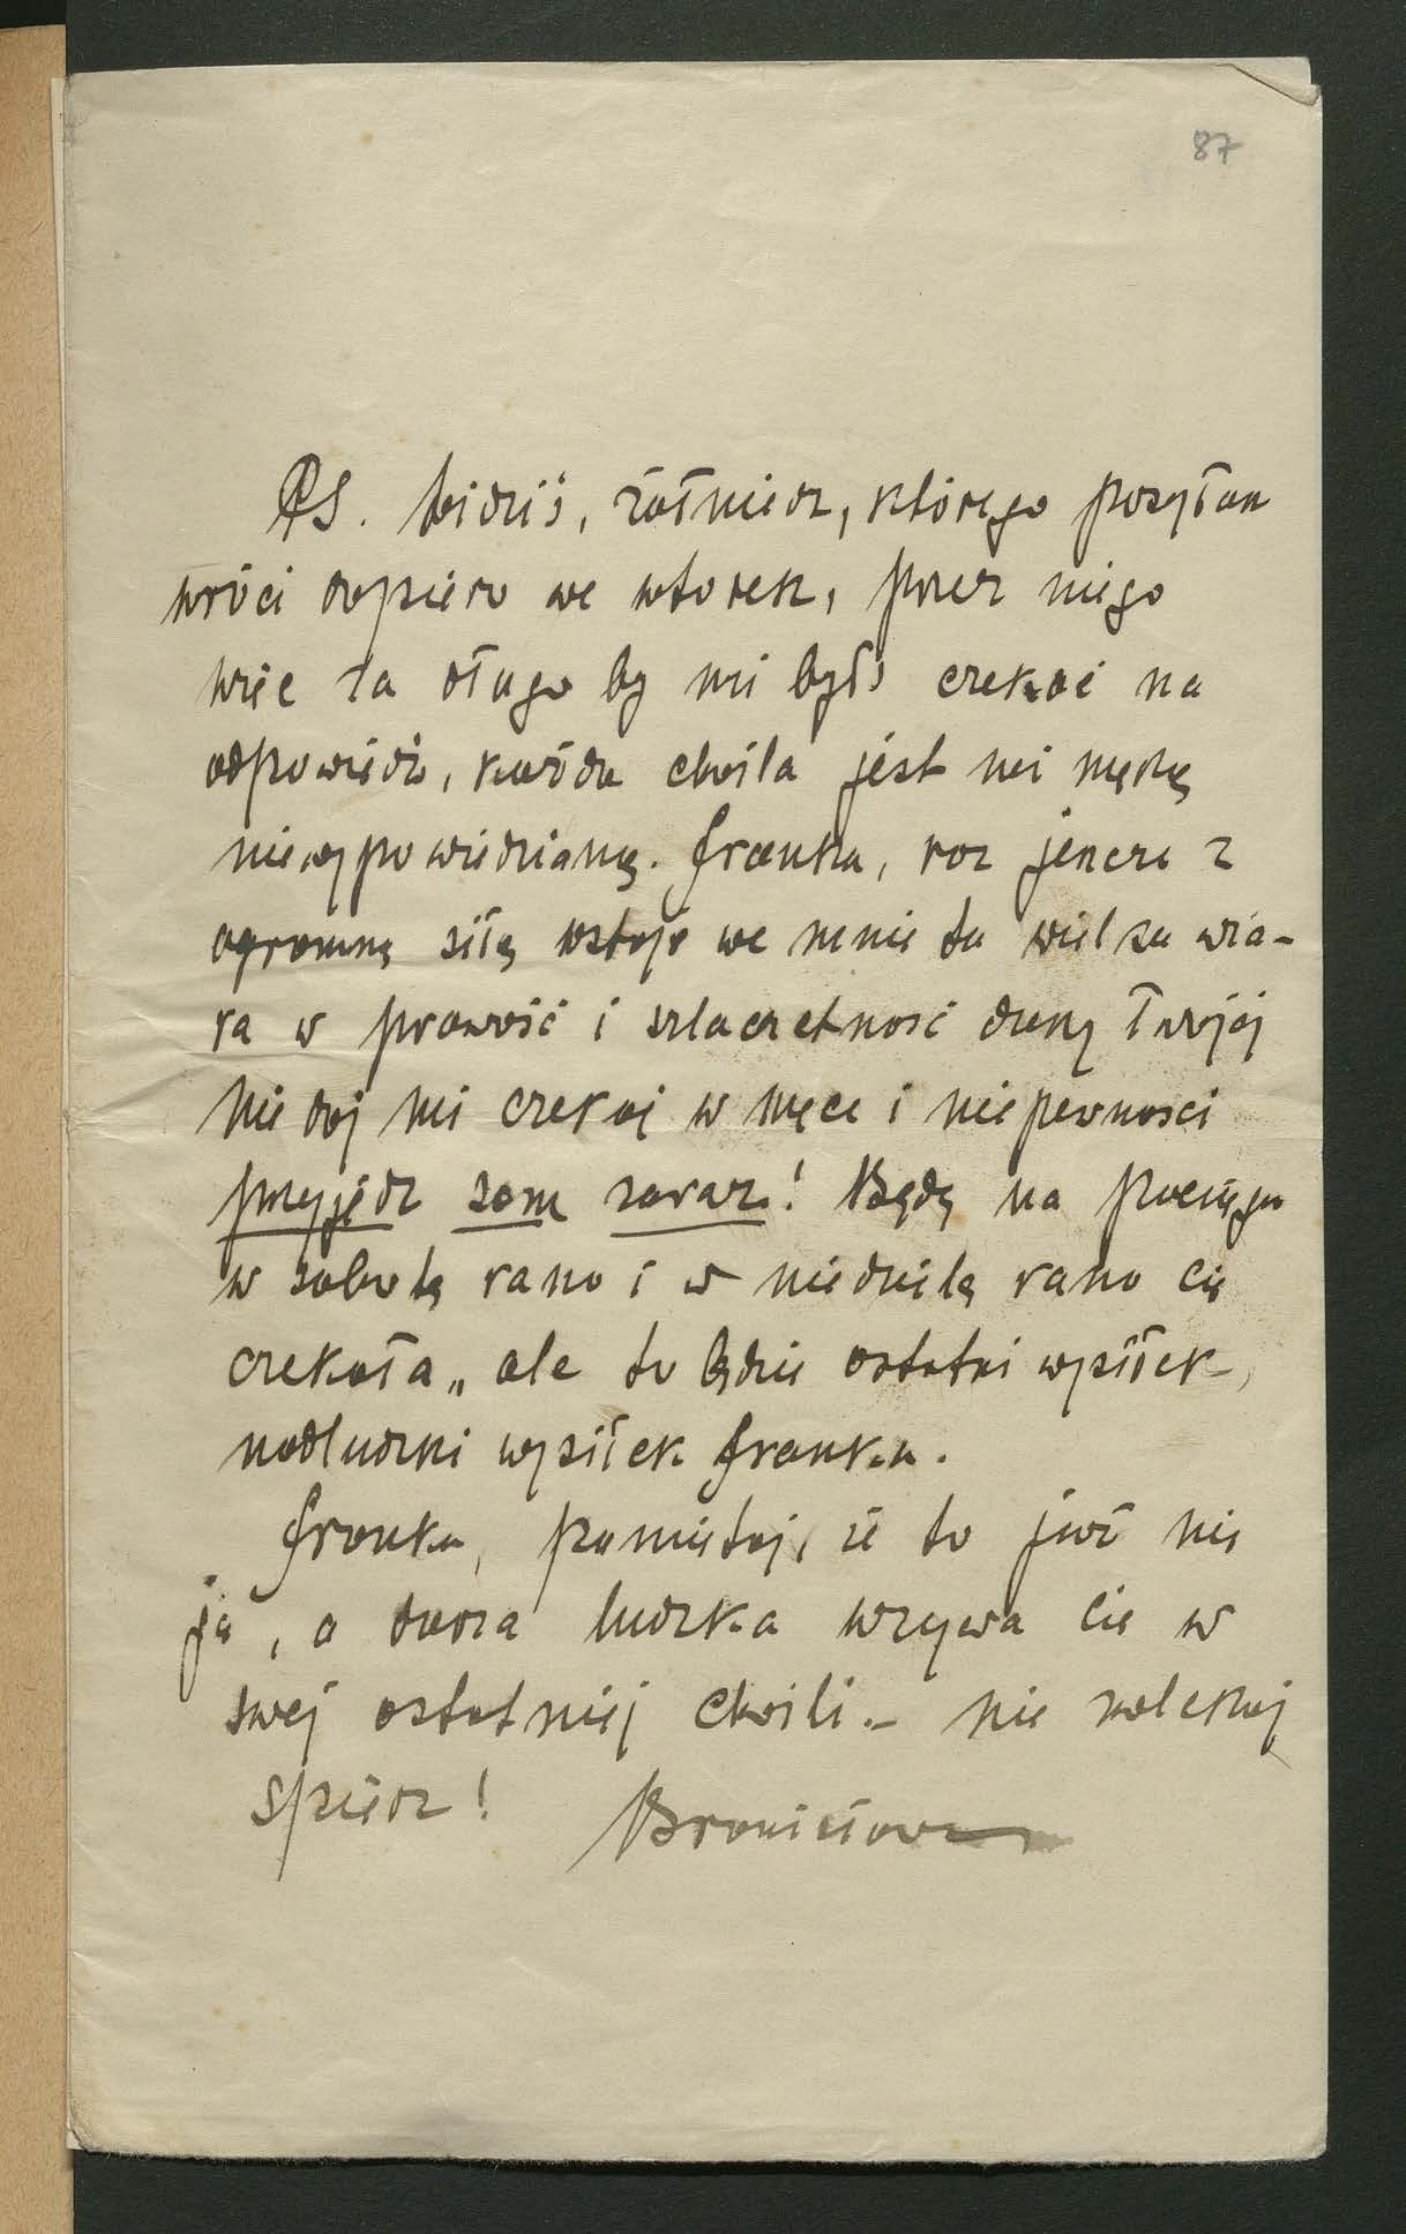 87
PS. Widziś, żołnierz, którego posyłam
wróci dopiero we wtorek, przez niego
więc za długo by mi było czekać na
odpowiedź, każda chwila jest mi męką
niewypowiedzianą. Franka, raz jencze z
ogromną siłą wstaje we mnie ta wielka wia-
ra w prawość i szlachetność duszy Twojéj
Nie daj mi czekaj w męce i niepewności
przyjedź sam zaraz! Będę na pociągu
w sobotę rano i w niedzielę rano cię
czekała, ale to będzie ostatni wysiłek,
nadludzki wysiłek Franka.
Franka, pamiętaj, że to już nie
ja, a dusza ludzka wzywa cię w
swej ostatniéj chwili. – nie zwlekaj
spiesz! Bronisława